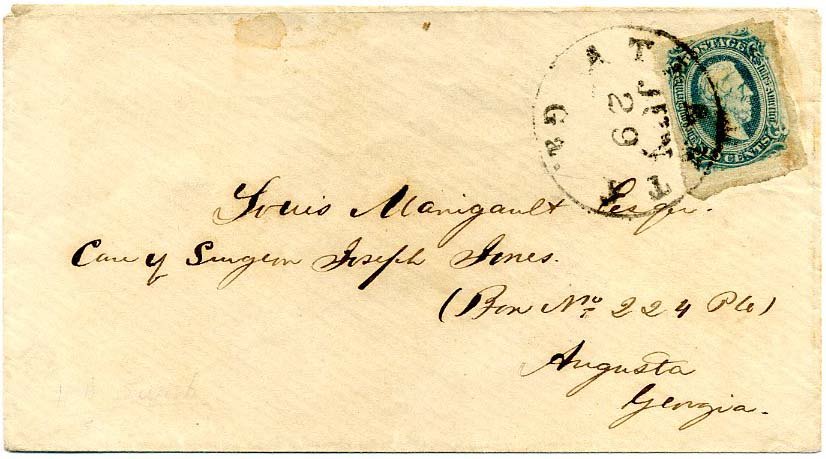 ATLANTA
Ga.
JUN
29
POSTAGE
CENTS
Louis Manigault Esqr.
Care of Surgeon Joseph Jones.
(Box No 224 PO)
Augusta
Georgia.